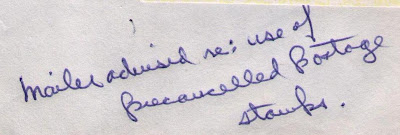 Mailer advised re: use of
Precancelled Postage
stamps.